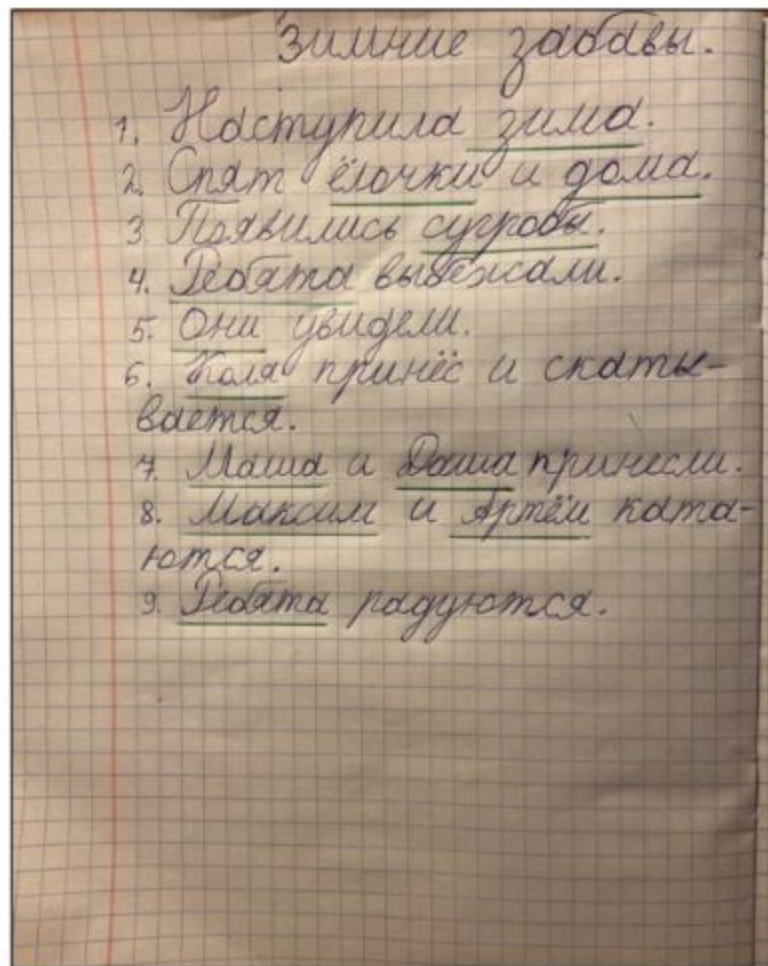 Зимние забавы.
1. Наступила зима.
2. Спят ёлочки и дома.
3. Появились сугробы.
4. Ребята выбежали.
5. Они увидели.
6. Коля принёс и скаты-
вается.
7. Маша и Даша принесли.
8. Максим и Артём ката-
ются.
9. Ребята радуются.